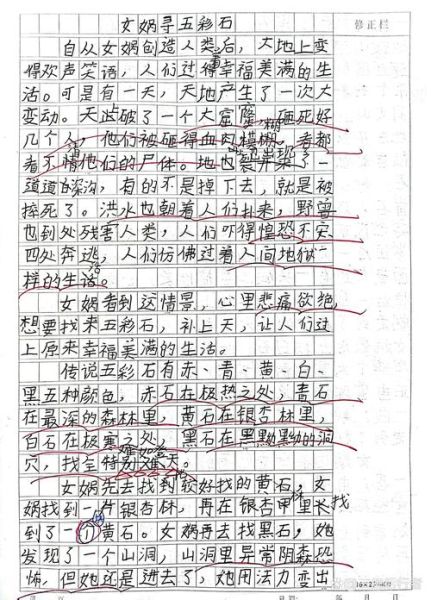 女娲寻五彩石
修正栏
自从女娲创造人类后，大地上变
得欢声笑语，人们过得幸福美满的生
活。可是有一天，天地产生了一次大
变动。天破了一个大窟窿，砸死好
几个人，他们被砸得血肉模糊。
者不清他们的尸体。地也裂开
道道的深沟，有的不是掉下去，就是被
摔死了。洪水也朝着人们扑来，野兽
也到处残害人类，人们吓得惶恐不安
四处奔逃，人们仿佛过着人间地狱一
样的生活。
女娲看到这情景，心里悲痛欲绝，
想要找来五彩石，补上天，让人们过
上原来幸福美满的生活。
传说五彩石有赤、青、黄、白、
黑五种颜色，赤石在极热之处，青石
在最深的森林里，黄石在银杏林里，
白石在极寒之处，黑石在黑黝黝的洞
穴，找全特别难
难如登天。
女娲先去找到较好找的黄石，女
娲找到一片银杏林，再在银杏林里找
到了一个黄石。女娲再去找黑石，她
发现了一个山洞，山洞里异常阴森恐
怖，但她还是进去了，她用法力变出